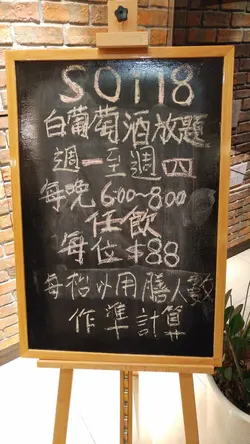 SO118
白葡萄酒放題
週一至週四
每晚 6:00~8:00
任飲
每位 $88
每枱以用膳人數
作準計算